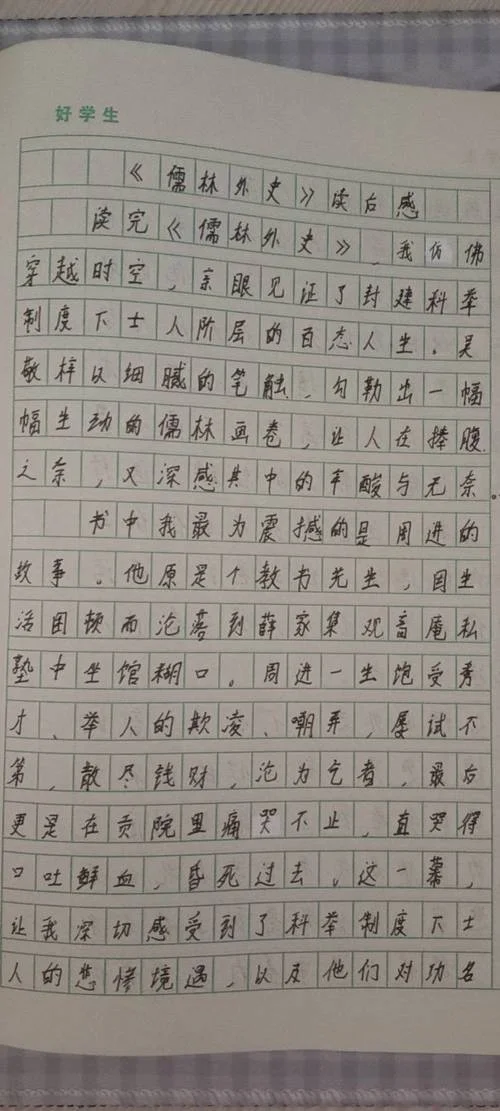 好学生
《儒林外史》读后感
读完《儒林外史》，我仿佛
穿越时空，亲眼见证了封建科举
制度下士人阶层的百态人生。吴
敬梓以细腻的笔触，勾勒出一幅
幅生动的儒林画卷，让人在捧腹
之余，又深感其中的辛酸与无奈。
书中我最为震撼的是周进的
故事。他原是个教书先生，因生
活困顿而沦落到薛家集观音庵私
塾中坐馆糊口。周进一生饱受秀
才、举人的欺凌、嘲弄，屡试不
第，散尽钱财，沦为乞者，最后
更是在贡院里痛哭不止，直哭得
口吐鲜血，昏死过去。这一幕，
让我深切感受到了科举制度下士
人的悲惨境遇，以及他们对功名